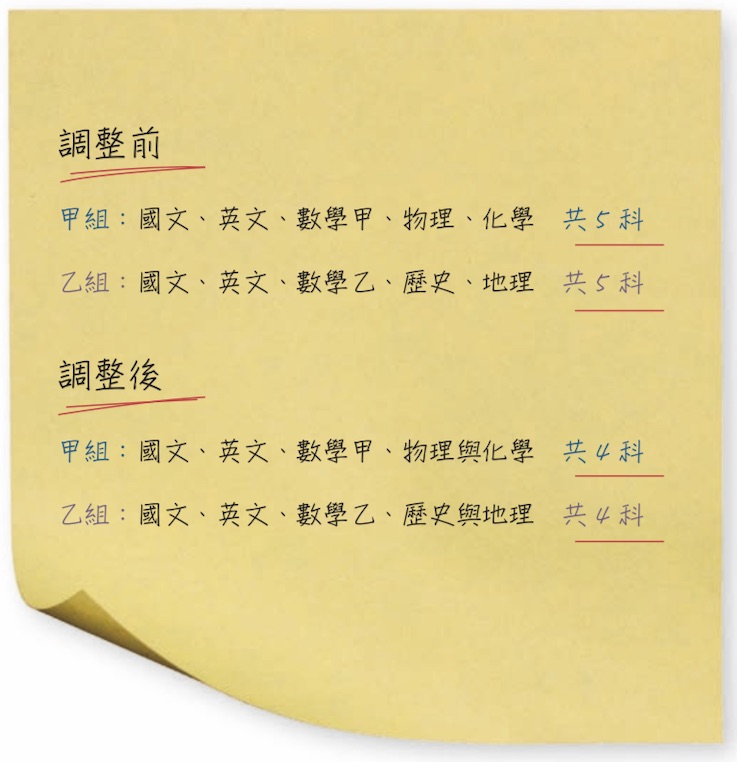 調整前
甲組：國文、英文、數學甲、物理、化學 共5科
乙組：國文、英文、數學乙、歷史、地理 共5科
調整後
甲組：國文、英文、數學甲、物理與化學 共4科
乙組：國文、英文、數學乙、歷史與地理 共4科